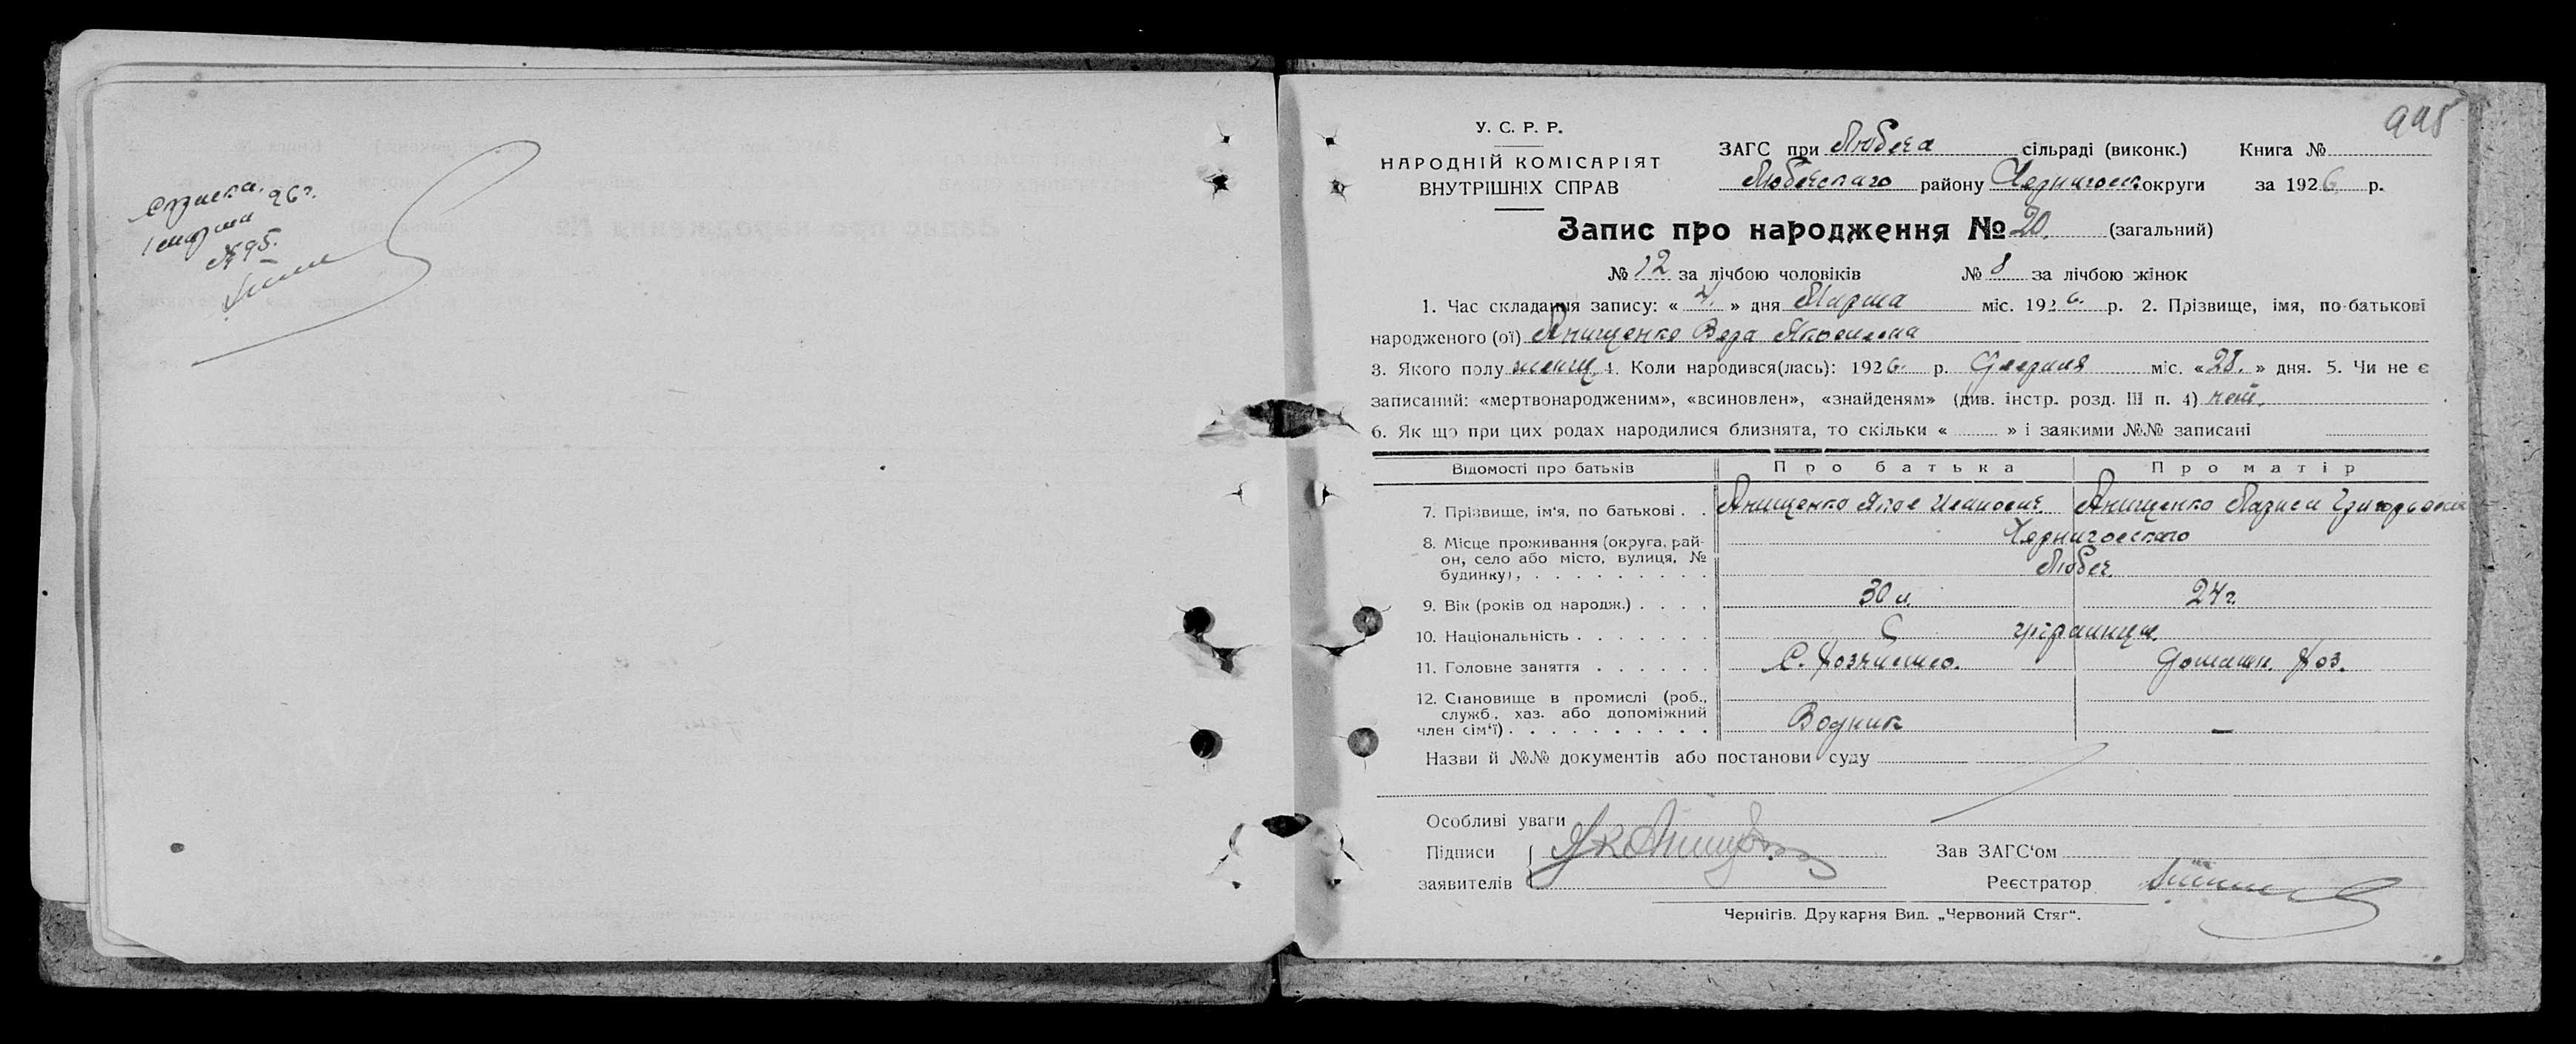 справка.
1 марта 26 г.
№ 95.
995
У. С. Р. Р.
НАРОДНІЙ КОМІСАРІЯТ
ВНУТРІШНІХ СПРАВ
ЗАГС при Любеча сільраді (виконк.) Книга №
Любечскаго району Черниговск округи за 1926 р.
Запис про народження № 20. (загальний)
№ 12 за лічбою чоловіків № 8 за лічбою жінок
1. Час складання запису: « 4. » дня Марта міс. 1926. р. 2. Прізвище, імя, по-батькові
народженого (ої) Анищенко Вера Яковлевна
3. Якого полу женщ. 4. Коли народився(лась): 1926. р. Февраля міс. «28.» дня. 5. Чи не є
записаний: «мертвонародженим», «всиновлен», «знайденям» (див. інстр. розд. III п. 4) нет.
6. Як що при цих родах народилися близнята, то скільки « » і заякими №№ записані
Відомості про батьків Про батька Про матір
7. Прізвище, ім'я, по батькові . . Анищенко Яков Иванович. Анищенко Лариса Григорьевна
8. Місце проживання (округа, рай- Черниговскаго
он, село або місто, вулиця, № Любеч.
будинку), . . . . . . . . . .
9. Вік (років од народж.) . . . . 30 л. 24 г.
10. Національність . . . . . . . украинцы.
11. Головне заняття . . . . . . С. Хозяйство. Домашн. Хоз.
12. Становище в промислі (роб.,
служб., хаз. або допоміжний
член сім'ї) . . . . . . . . . . Водник —
Назви й №№ документів або постанови суду
Особливі уваги
Підписи Як Анищенко Зав ЗАГС'ом
заявителів Реєстратор
Чернігів. Друкарня Вид. „Червоний Стяг".